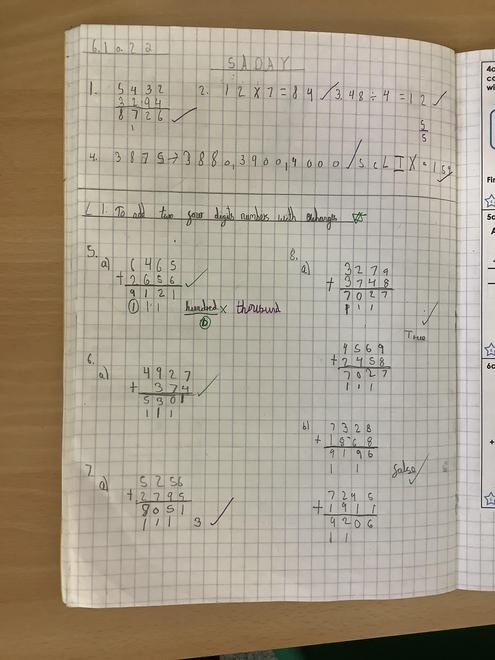 6.10.22
5 A DAY
1. 5432 2. 12 x 7 = 84 3. 48 ÷ 4 = 12
3294
8726
1
5/5
4. 3875 → 3880, 3900, 4000 5. CLIX = 159
LI: To add two four digits numbers with exchanges
5. a) 6465
+ 2656
9121
1 1 1
hundred x thousand
b
6. a) 4927
+ 374
5301
1 1 1
7. a) 5256
+ 2795
8051
1 1 1 3
8. a) 3279
+ 3748
7027
1 1 1
True
4569
+ 2458
7027
1 1 1
b) 7328
+ 1868
9196
1 1
false
7295
+ 1911
9206
1 1
4a
5a
6a